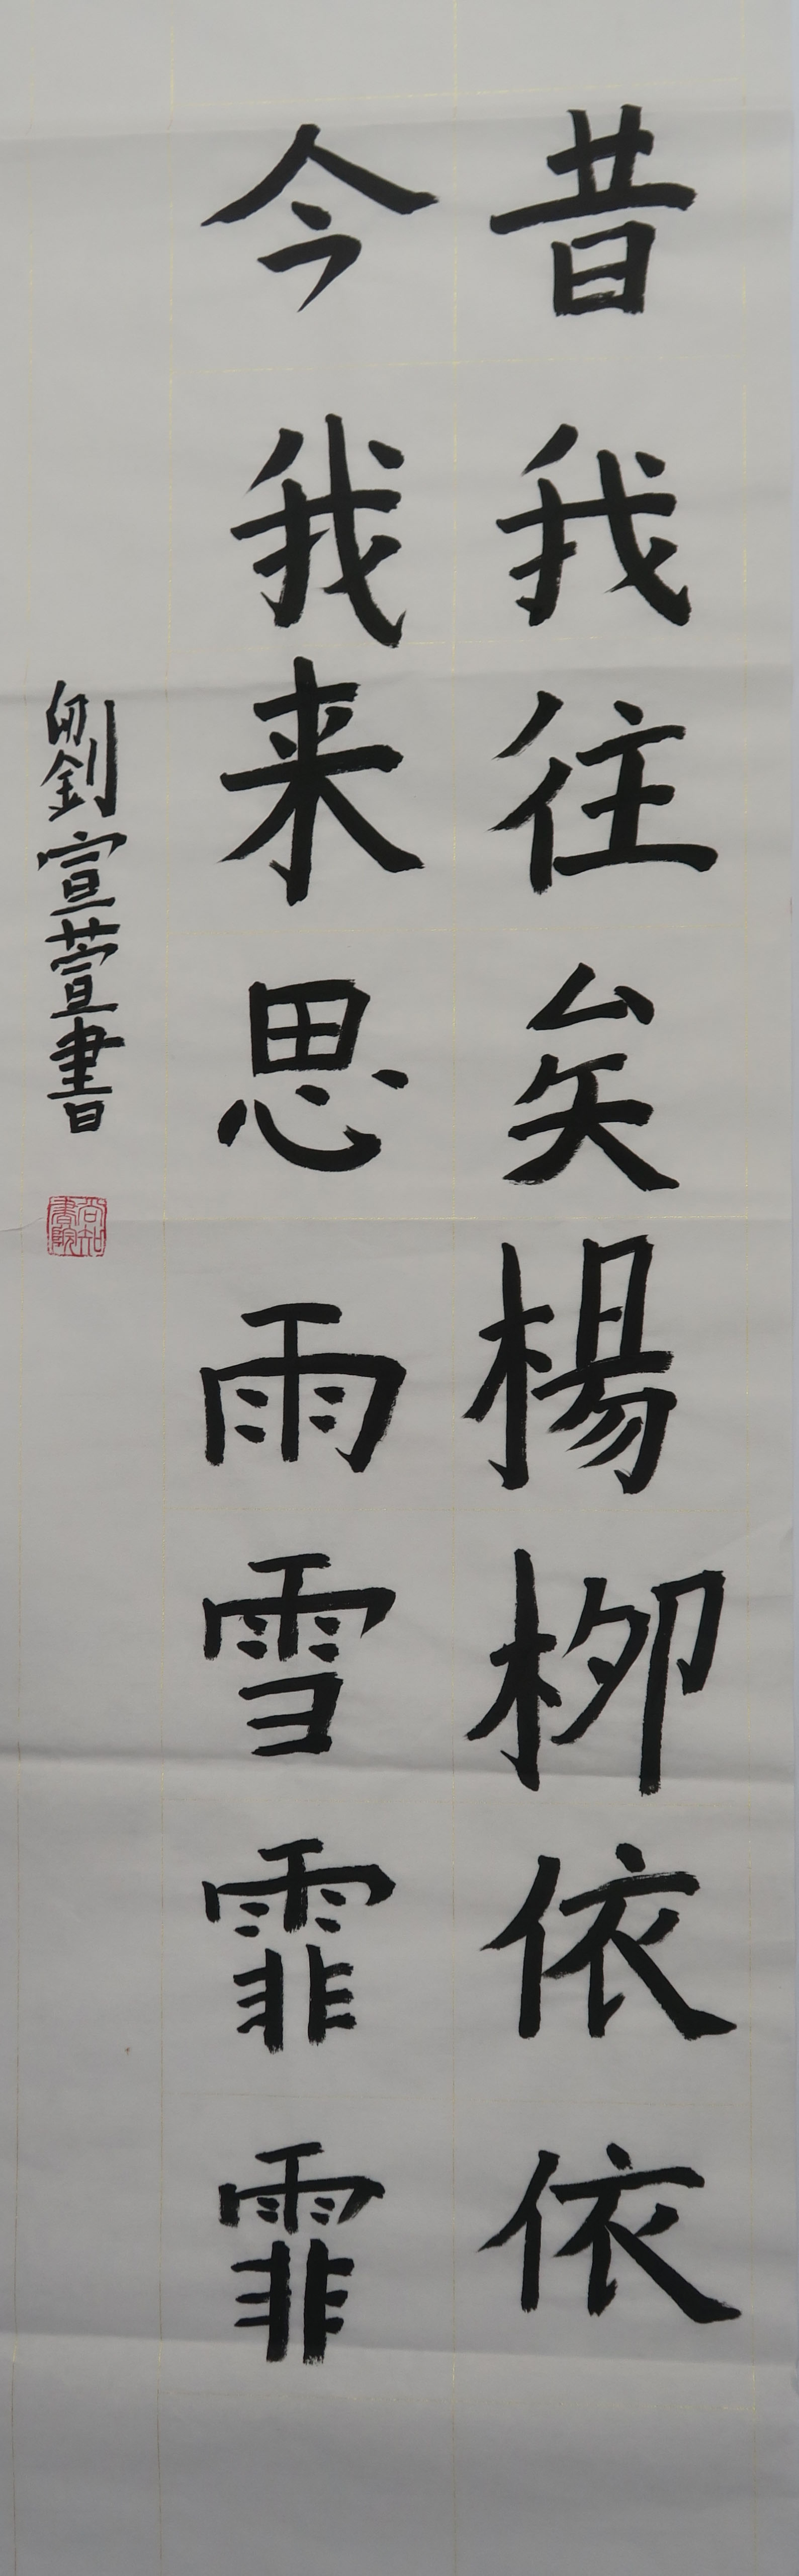 昔我往矣楊柳依依
今我来思雨雪霏霏
劉宣萱書
尚知書院